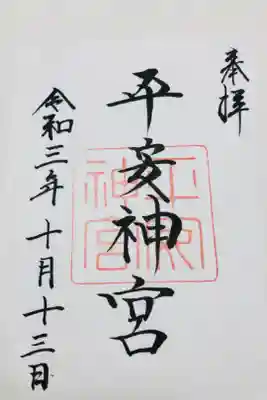 奉拝
平安神宮
平安神宮
令和三年十月十三日